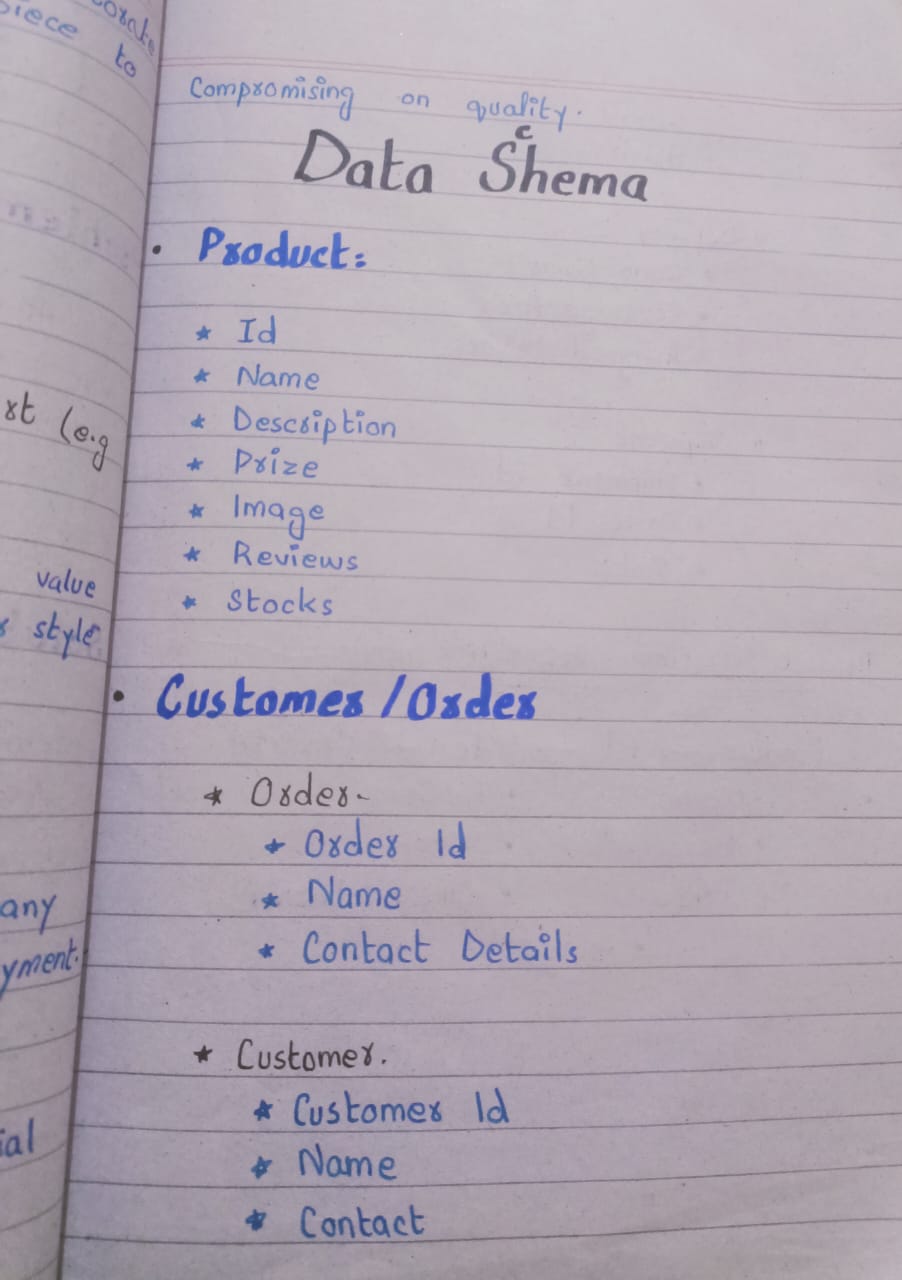 orate
piece to
rt (e.g
value
style
any
yment.
ial
Compromising on quality.
Data Schema
• Product:
* Id
* Name
* Description
* Prize
* Image
* Reviews
* Stocks
• Customer/Order
* Order-
* Order Id
* Name
* Contact Details
* Customer.
* Customer Id
* Name
* Contact